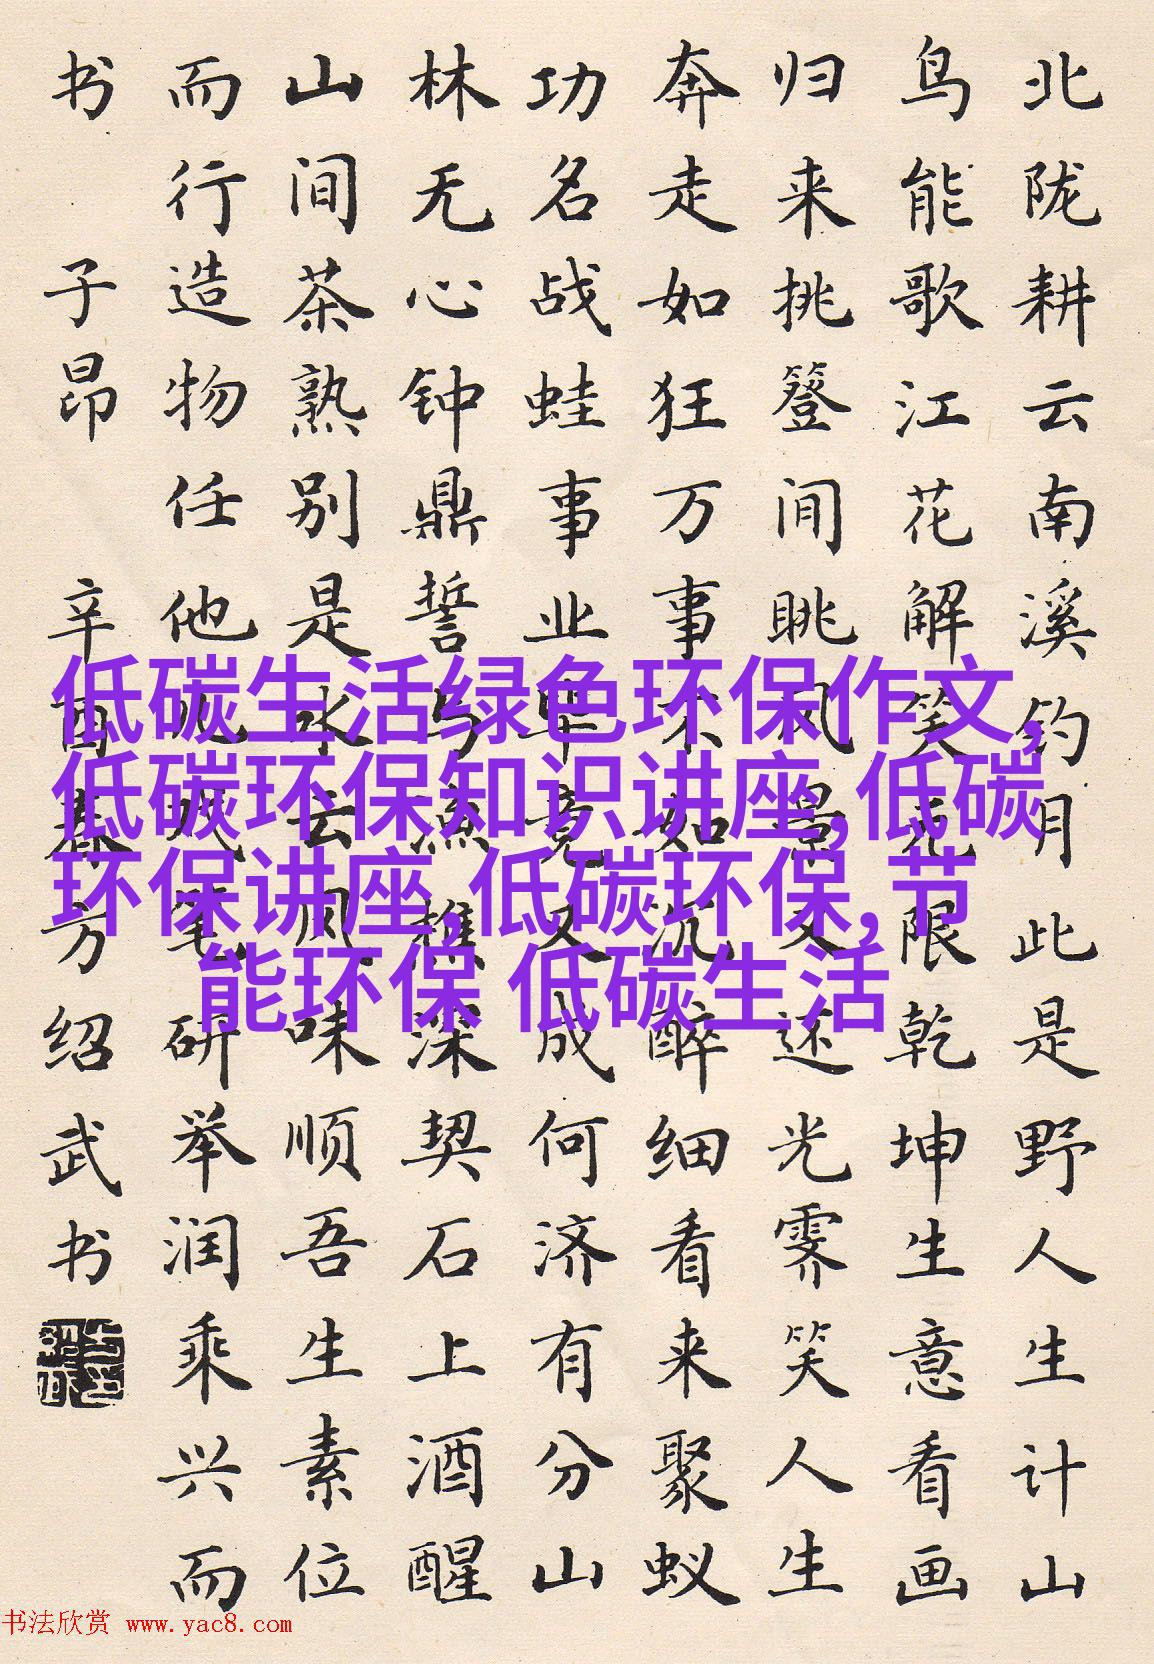 北陇耕云南溪钓月此是野人生计山
鸟能歌江花解笑无限乾坤生意看画
归来挑簦间眺风景又还光霁笑人生
奔走如狂万事不如沉醉细看来聚蚁
功名战蛙事业毕竟又成何济有分山
林无心钟鼎誓与鱼樵深契石上酒醒
山间茶熟别是水云风味顺吾生素位
而行造物任他儿戏笔研举润乘兴而
书 子昂 辛酉春方绍武书
低碳生活绿色环保作文,
低碳环保知识讲座,低碳
环保讲座,低碳环保,节
能环保 低碳生活
书法欣赏 www.yac8.com